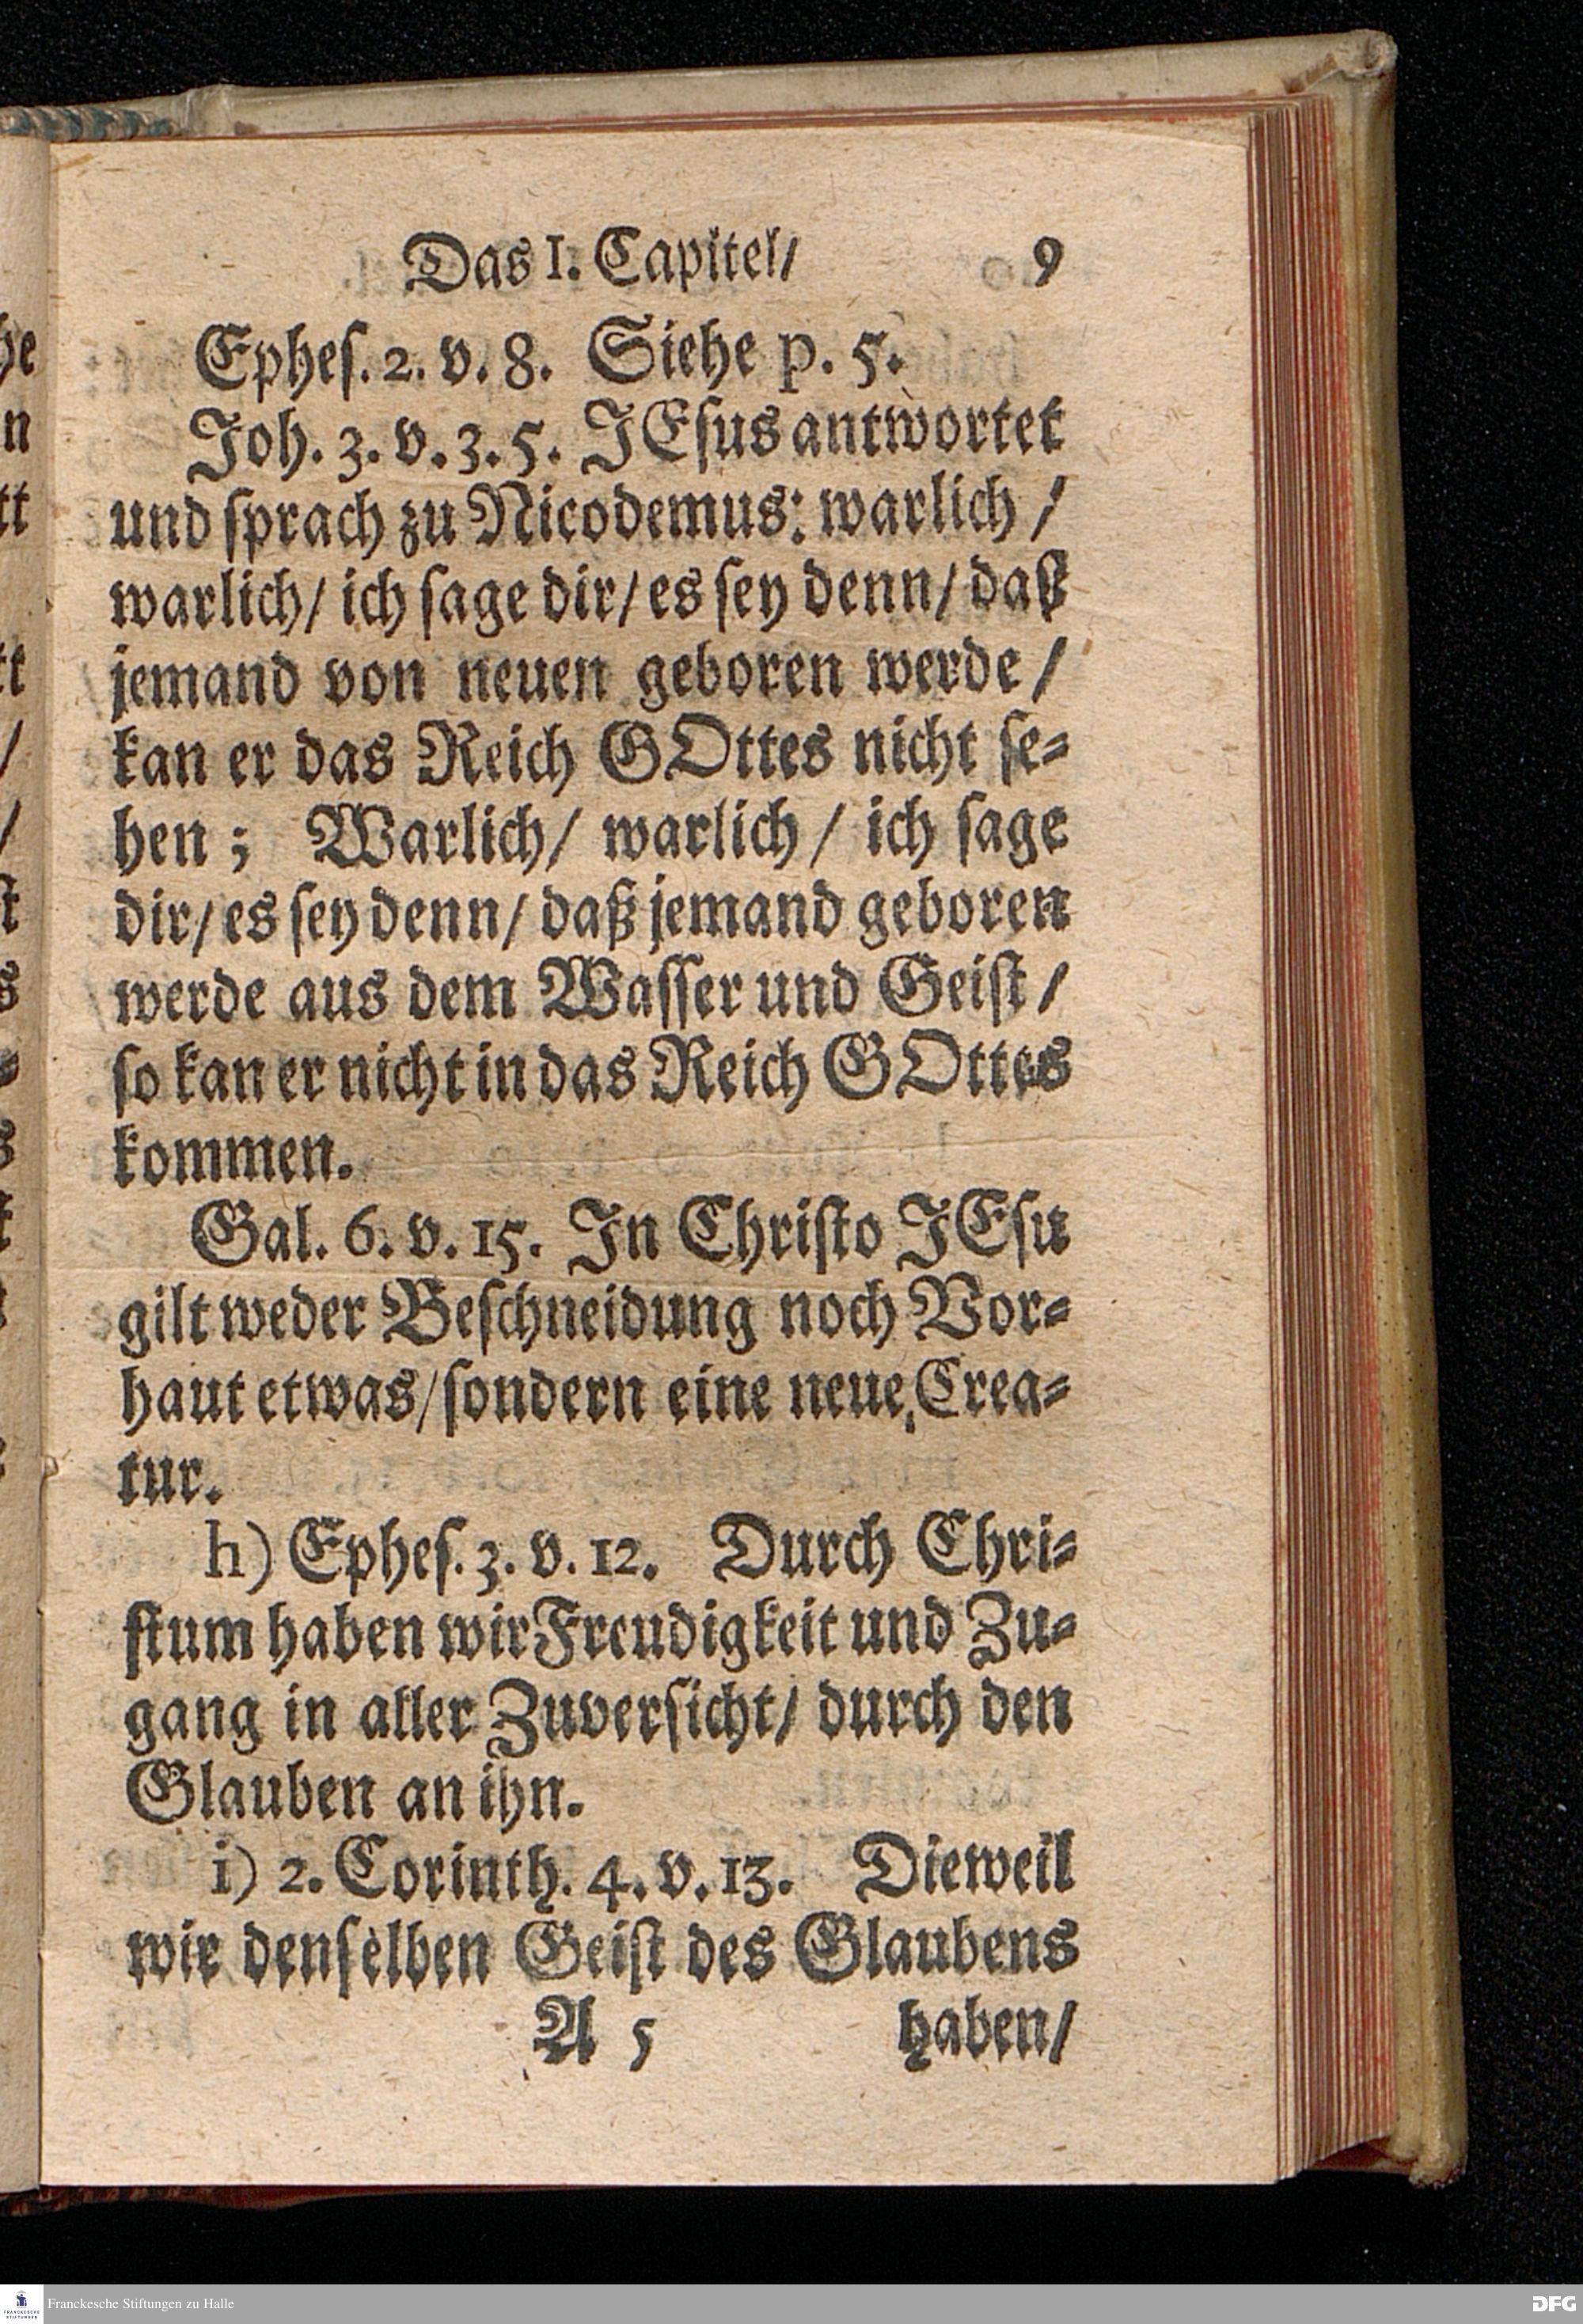 Das I. Capitel/ 9
Ephes. 2. v. 8. Siehe p. 5.
Joh. 3. v. 3. 5. JEsus antwortet
und sprach zu Nicodemus: warlich /
warlich/ ich sage dir/ es sey denn/ daß
jemand von neuen geboren werde /
kan er das Reich GOttes nicht se-
hen ; Warlich/ warlich / ich sage
dir/ es sey denn/ daß jemand geboren
werde aus dem Wasser und Geist /
so kan er nicht in das Reich GOttes
kommen.
Gal. 6. v. 15. In Christo JEsu
gilt weder Beschneidung noch Vor-
haut etwas/ sondern eine neue Crea-
tur.
h) Ephes. 3. v. 12. Durch Chri-
stum haben wir Freudigkeit und Zu-
gang in aller Zuversicht/ durch den
Glauben an ihn.
i) 2. Corinth. 4. v. 13. Dieweil
wir denselben Geist des Glaubens
A 5 haben/
Franckesche Stiftungen zu Halle
DFG